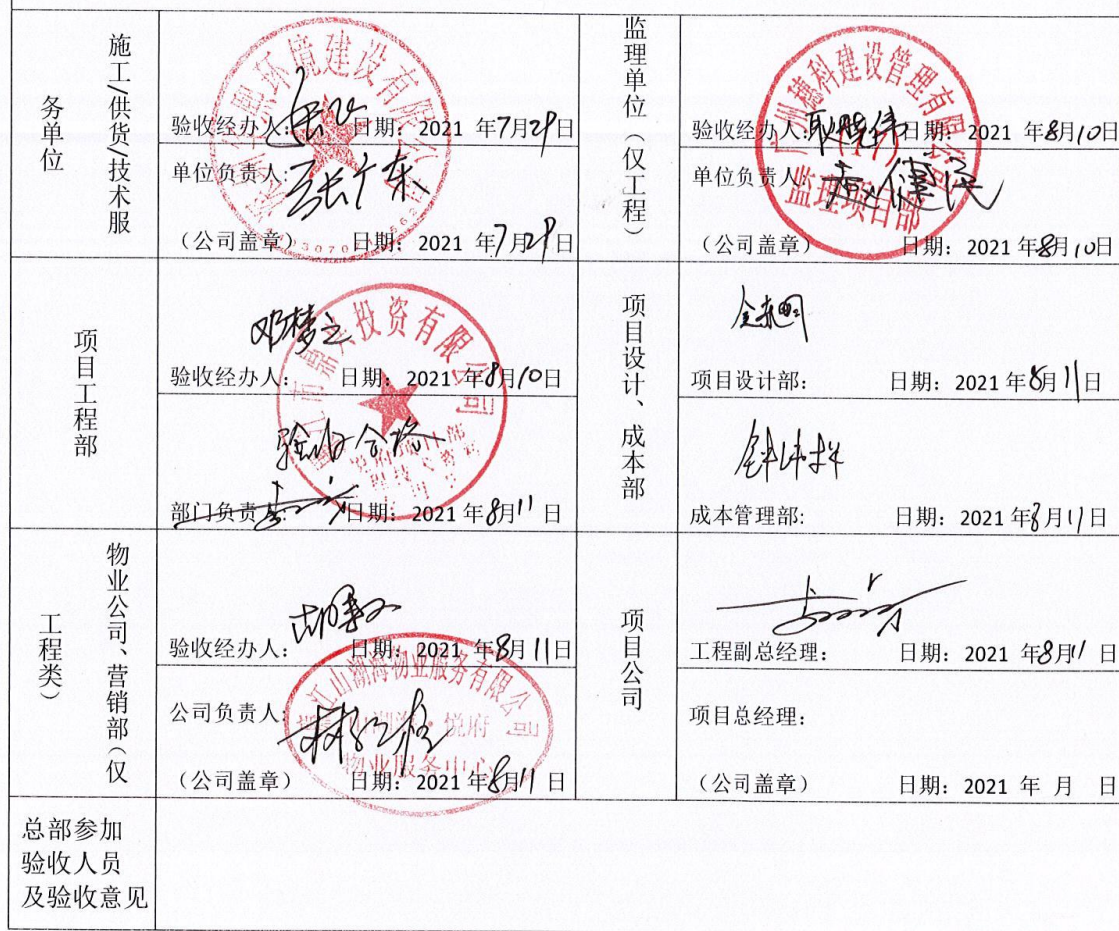 施工/供货/技术服
务单位
验收经办人: 日期: 2021 年7月29日
单位负责人: 张广东
(公司盖章) 日期: 2021 年7月29日
环境建设有限公司
监理单位(仅工程)
验收经办人: 日期: 2021 年8月10日
单位负责人:
(公司盖章) 日期: 2021 年8月10日
广州穗科建设管理有限公司
监理项目部
项目工程部
邓梦之
验收经办人: 日期: 2021 年8月10日
验收合格
部门负责人: 日期: 2021 年8月11日
投资有限公司
项目设计、成本部
项目设计部: 日期: 2021 年8月11日
成本管理部: 日期: 2021 年8月11日
物业公司、营销部(仅
工程类)
验收经办人: 日期: 2021 年8月11日
公司负责人:
(公司盖章) 日期: 2021 年8月11日
物业服务有限公司
悦府
物业服务中心
项目公司
工程副总经理: 日期: 2021 年8月11日
项目总经理:
(公司盖章) 日期: 2021 年 月 日
总部参加
验收人员
及验收意见